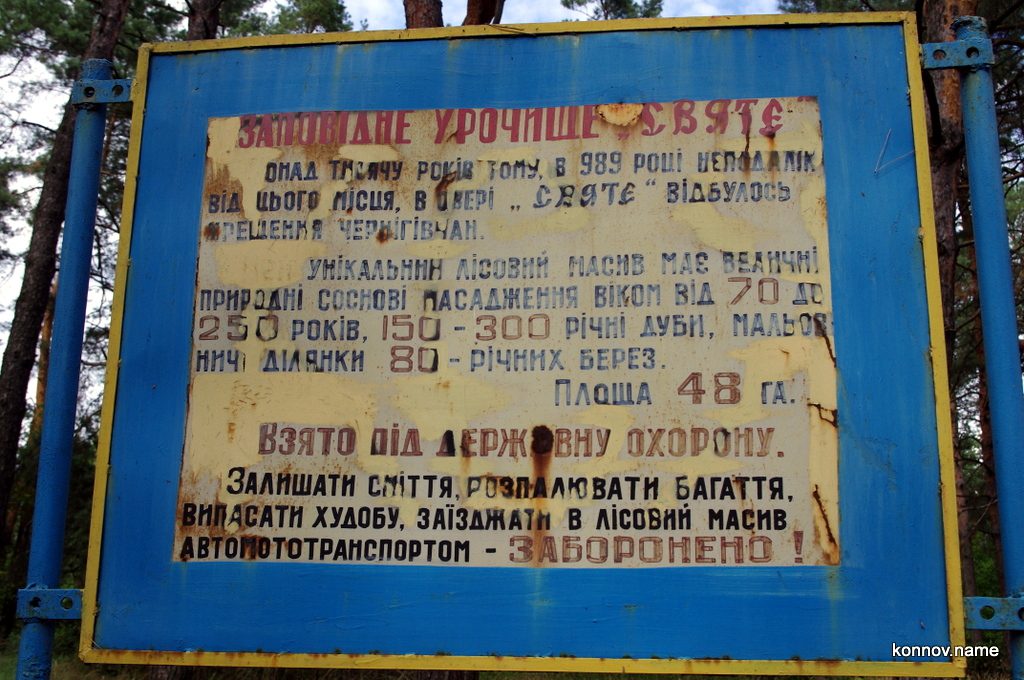 ЗАПОВІДНЕ УРОЧИЩЕ „СВЯТЕ"
ОНАД ТИСЯЧУ РОКІВ ТОМУ, В 989 РОЦІ НЕПОДАЛІК
ВІД ЦЬОГО МІСЦЯ, В ОЗЕРІ „СВЯТЕ" ВІДБУЛОСЬ
ХРЕЩЕННЯ ЧЕРНІГІВЧАН.
УНІКАЛЬНИЙ ЛІСОВИЙ МАСИВ МАЄ ВЕЛИЧНІ
ПРИРОДНІ СОСНОВІ НАСАДЖЕННЯ ВІКОМ ВІД 70 ДО
250 РОКІВ, 150 - 300 РІЧНІ ДУБИ, МАЛЬОВ
НИЧІ ДІЛЯНКИ 80 - РІЧНИХ БЕРЕЗ.
ПЛОЩА 48 ГА.
ВЗЯТО ПІД ДЕРЖАВНУ ОХОРОНУ.
ЗАЛИШАТИ СМІТТЯ, РОЗПАЛЮВАТИ БАГАТТЯ,
ВИПАСАТИ ХУДОБУ, ЗАЇЗДЖАТИ В ЛІСОВИЙ МАСИВ
АВТОМОТОТРАНСПОРТОМ - ЗАБОРОНЕНО !
konnov.name